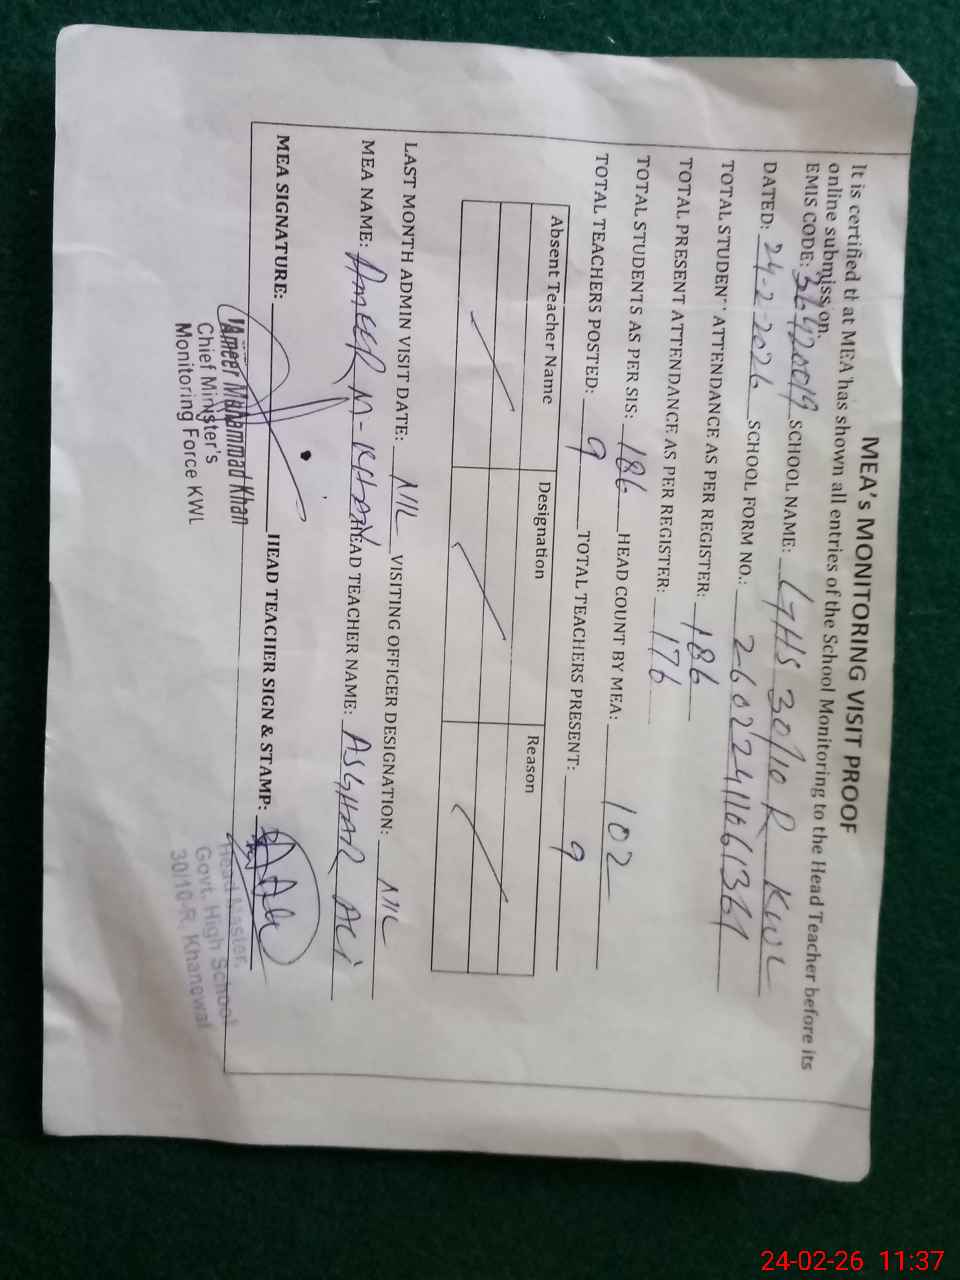 MEA's MONITORING VISIT PROOF
It is certified that MEA has shown all entries of the School Monitoring to the Head Teacher before its
online submission.
EMIS CODE: 36420019 SCHOOL NAME: GHS 30/10 R KWL
DATED: 24-2-2026 SCHOOL FORM NO.:
TOTAL STUDENT ATTENDANCE AS PER REGISTER: 186
TOTAL PRESENT ATTENDANCE AS PER REGISTER: 176
TOTAL STUDENTS AS PER SIS: 186 HEAD COUNT BY MEA: 102
TOTAL TEACHERS POSTED: 9 TOTAL TEACHERS PRESENT: 9
Absent Teacher Name Designation Reason
LAST MONTH ADMIN VISIT DATE: NIL VISITING OFFICER DESIGNATION: NIL
MEA NAME: AMEER M-KHAN HEAD TEACHER NAME: ASGHAR ALI
MEA SIGNATURE: HEAD TEACHER SIGN & STAMP:
Ameer Muhammad Khan
Chief Minister's
Monitoring Force KWL
Head Master,
Govt. High School
30/10-R, Khanewal
24-02-26 11:37